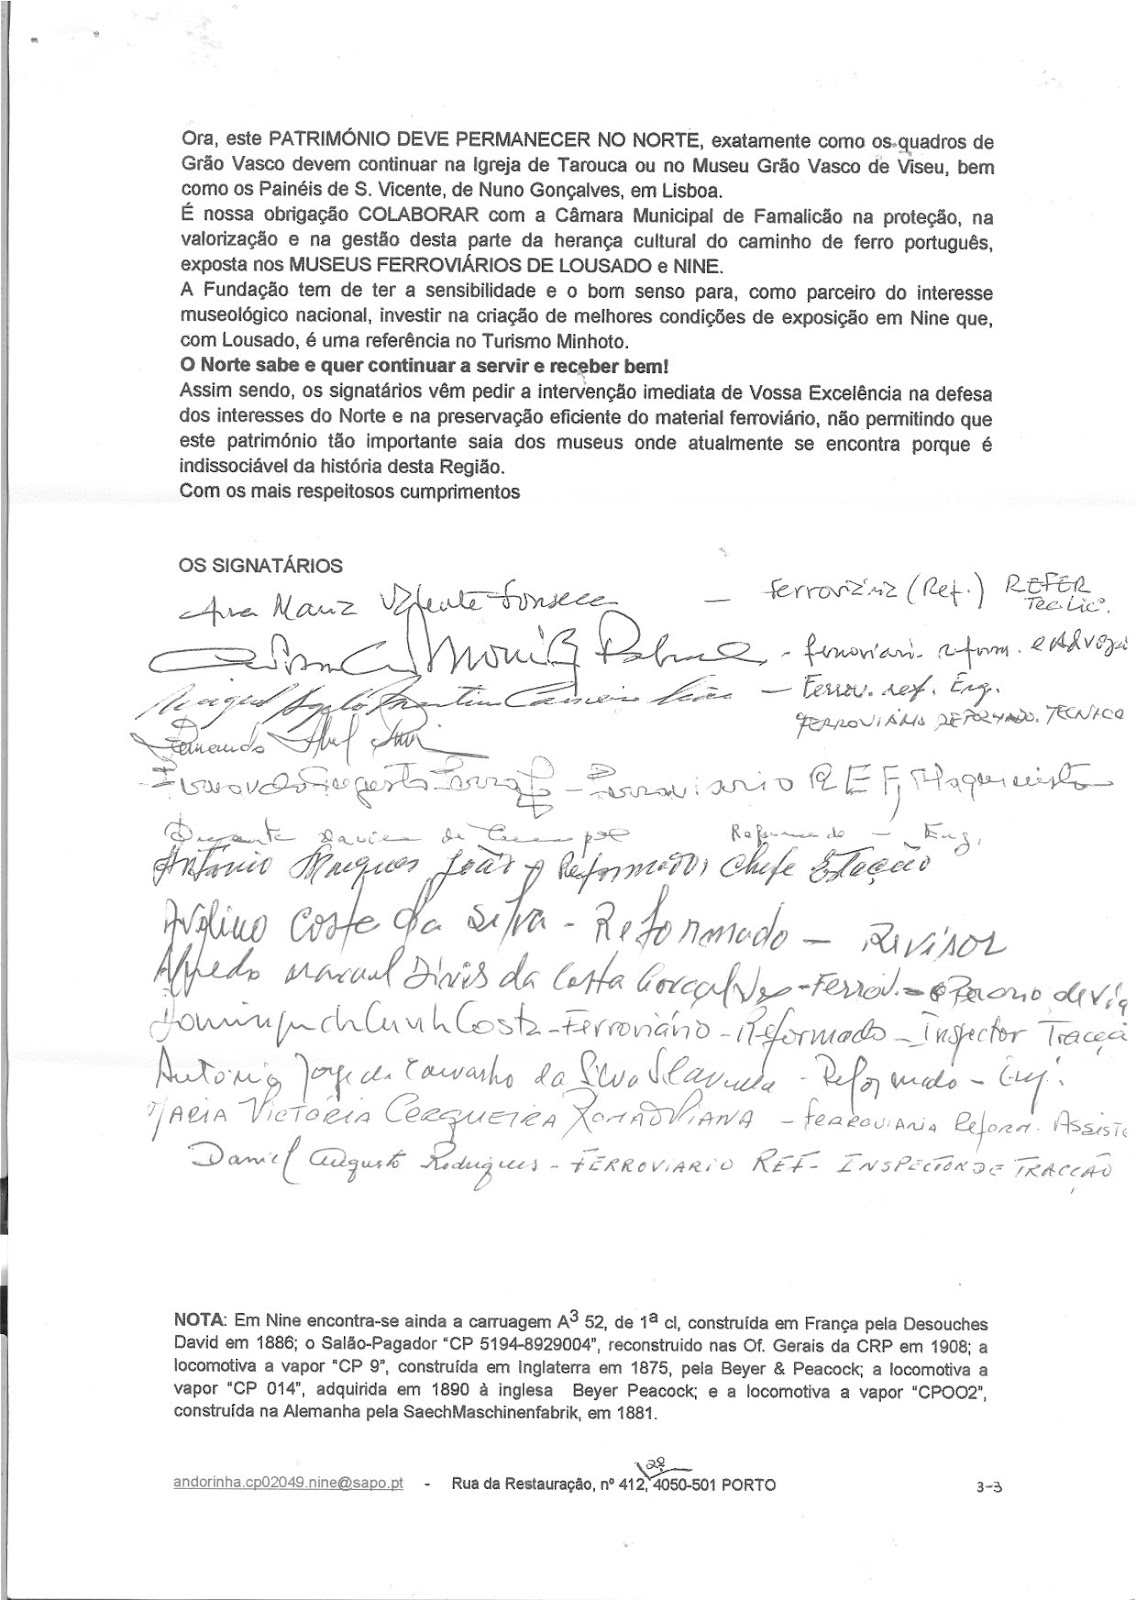 Ora, este PATRIMÓNIO DEVE PERMANECER NO NORTE, exatamente como os quadros de
Grão Vasco devem continuar na Igreja de Tarouca ou no Museu Grão Vasco de Viseu, bem
como os Painéis de S. Vicente, de Nuno Gonçalves, em Lisboa.
É nossa obrigação COLABORAR com a Câmara Municipal de Famalicão na proteção, na
valorização e na gestão desta parte da herança cultural do caminho de ferro português,
exposta nos MUSEUS FERROVIÁRIOS DE LOUSADO e NINE.
A Fundação tem de ter a sensibilidade e o bom senso para, como parceiro do interesse
museológico nacional, investir na criação de melhores condições de exposição em Nine que,
com Lousado, é uma referência no Turismo Minhoto.
O Norte sabe e quer continuar a servir e receber bem!
Assim sendo, os signatários vêm pedir a intervenção imediata de Vossa Excelência na defesa
dos interesses do Norte e na preservação eficiente do material ferroviário, não permitindo que
este património tão importante saia dos museus onde atualmente se encontra porque é
indissociável da história desta Região.
Com os mais respeitosos cumprimentos
OS SIGNATÁRIOS
Ana Maria Valente Fonseca — Ferroviária (Ref.) REFER
Tec. Lic.
Moniz - ferroviari. reform. e Advog
Miguel Martins — Ferrov. ref. Eng.
Fernando Abel FERROVIÁRIO REFORMADO. TECNICO
Augusto - Ferroviario REF, Maquinista
Duarte Reformado - Eng.
António Marques João - Reformado, Chefe Estação
Avelino Costa da Silva - Reformado — Revisor
Alfredo Manuel Dinis da Costa Gonçalves - Ferrov. - de via
Domingos da Cunha Costa - Ferroviário - Reformado - Inspector Tracçã
António Jorge de Carvalho da Silva - Reformado - Eng.
MARIA VICTÓRIA CERQUEIRA ROMÃO VIANA - FERROVIARIA Reform. Assiste
Daniel Augusto Rodrigues - FERROVIARIO REF - INSPECTOR DE TRACÇÃO
NOTA: Em Nine encontra-se ainda a carruagem A3 52, de 1ª cl, construída em França pela Desouches
David em 1886; o Salão-Pagador "CP 5194-8929004", reconstruido nas Of. Gerais da CRP em 1908; a
locomotiva a vapor "CP 9", construída em Inglaterra em 1875, pela Beyer & Peacock; a locomotiva a
vapor "CP 014", adquirida em 1890 à inglesa Beyer Peacock; e a locomotiva a vapor "CPOO2",
construída na Alemanha pela SaechMaschinenfabrik, em 1881.
andorinha.cp02049.nine@sapo.pt - Rua da Restauração, nº 412, 4050-501 PORTO 3-3